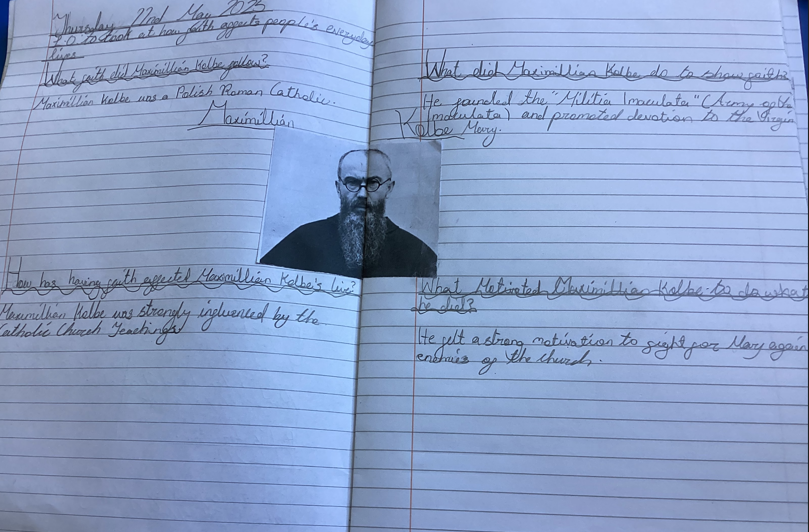 Thursday 22nd May 2025
L.O to look at how faith affects people's everyday
lives
What faith did Maximillian Kolbe follow?
Maximillian Kolbe was a Polish Roman Catholic.
Maximillian
How has having faith affected Maximillian Kolbe's live?
Maximillian Kolbe was strongly influenced by the
Catholic Church Teachings
Kolbe
What did Maximillian Kolbe do to show faith?
He founded the "Militia Imaculata" (Army of the
Imaculata) and promoted devotion to the Virgin
Mary.
What Motivated Maximillian Kolbe to do what
he did?
He felt a strong motivation to fight for Mary again
enemies of the church.